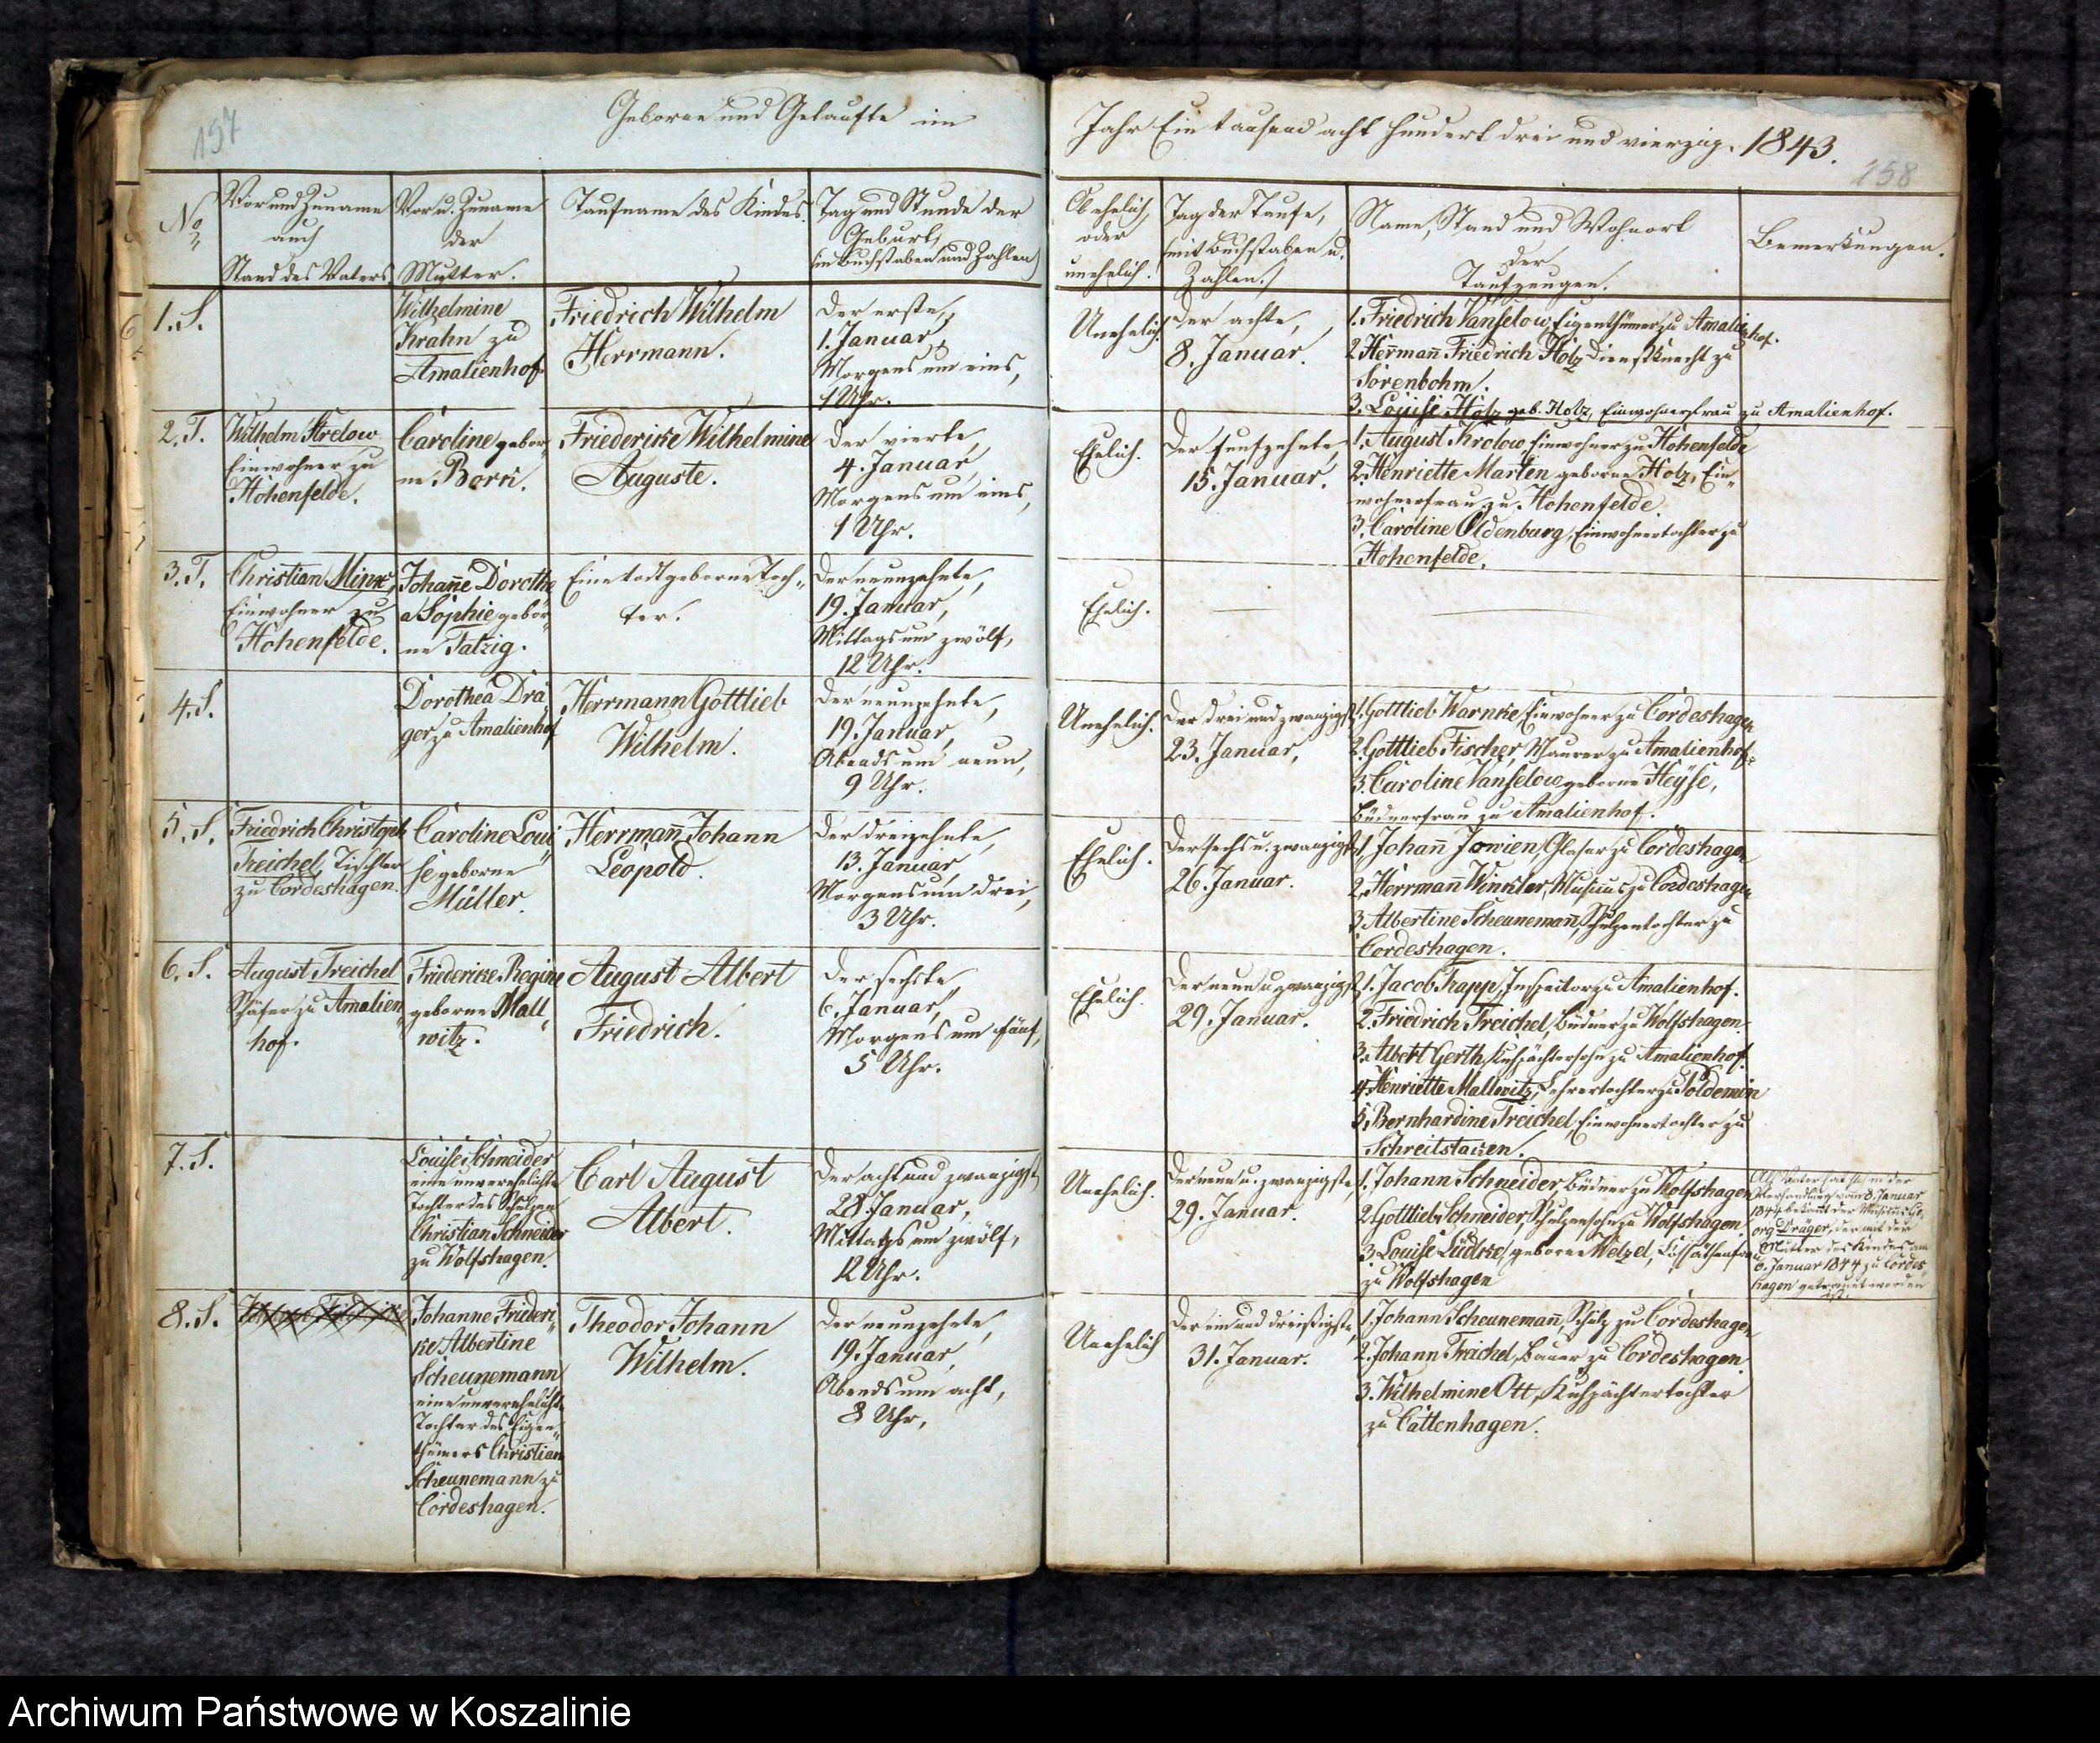 157
Geborne und Getaufte im
No
Vor und Zuname
auch
Stand des Vaters
Vor u. Zuname
der
Mutter.
Taufname des Kindes.
Tag und Stunde der
Geburt,
(in Buchstaben und Zahlen)
1. S.
Wilhelmine
Krahn zu
Amalienhof.
Friedrich Wilhelm
Herrmann.
Der erste,
1. Januar,
Morgens um eins,
1 Uhr.
2. T.
Wilhelm
Einwohner zu
Hohenfelde.
Caroline gebor„
ne
Friederike Wilhelmine
Auguste.
Der vierte,
4. Januar
Morgens um eins,
1 Uhr.
3. T.
Christian
Einwohner zu
Hohenfelde.
Johanne Dorothe
a Sophie gebor„
ne Tatzig.
Eine todtgeborne Toch„
ter.
Der neunzehnte,
19. Januar,
Mittags um zwölf,
12 Uhr.
4. S.
Dorothea Drä„
ger zu Amalienhof
Herrmann Gottlieb
Wilhelm.
Der neunzehnte,
19. Januar,
Abends um neun,
9 Uhr.
5. S.
Friedrich Christoph
Treichel, Tischler
zu Cordeshagen.
Caroline Loui„
se geborne
Müller.
Herrmann Johann
Leopold.
Der dreizehnte,
13. Januar,
Morgens um drei,
3 Uhr.
6. S.
August Treichel
Schäfer zu Amalien„
hof.
Friederike Regine
geborne Mall„
witz.
August Albert
Friedrich.
Der sechste,
6. Januar,
Morgens um fünf,
5 Uhr.
7. S.
Louise Schneider
eine unverehelichte
Tochter des Schulzen
Christian Schneider
zu Wolfshagen.
Carl August
Albert.
Der acht und zwanzigste
28. Januar,
Mittags um zwölf,
12 Uhr.
8. S.
Johanne Friederi„
ke Albertine
Scheunemann
eine unverehelichte
Tochter des Eigen„
thümers Christian
Scheunemann zu
Cordeshagen.
Theodor Johann
Wilhelm.
Der neunzehnte,
19. Januar,
Abends um acht,
8 Uhr,
Jahr Ein tausend acht hundert drei und vierzig. 1843.
158
Ob ehelich
oder
unehelich.
Tag der Taufe,
(mit Buchstaben u.
Zahlen.)
Name, Stand und Wohnort
der
Taufzeugen.
Bemerkungen.
Unehelich.
Der achte,
8. Januar.
1. Friedrich Vanselow, Eigenthümer zu Amalienhof.
2. Hermann Friedrich Holz Dienstknecht zu
Sorenbohm.
3. Louise Holz geb. Holz, Einwohnerfrau zu Amalienhof.
Ehelich.
Der funfzehnte,
15. Januar.
1. August Krolow, Einwohner zu Hohenfelde
2. Henriette Marten geborne Holz, Ein„
wohnerfrau zu Hohenfelde.
3. Caroline Oldenburg, Einwohnertochter zu
Hohenfelde.
Ehelich.
Unehelich.
Der drei und zwanzigste
23. Januar,
1. Gottlieb Warnke, Einwohner zu Cordeshagen
2. Gottlieb Fischer, Maurer zu Amalienhof.
3. Caroline Vanselow geborne Heyse,
Büdnerfrau zu Amalienhof.
Ehelich.
Der sechs u. zwanzigste
26. Januar.
1. Johann Jowien, Glaser zu Cordeshagen
2. Herrmann Winkler, Musicus zu Cordeshagen
3. Albertine Scheunemann, Schulzentochter zu
Cordeshagen.
Ehelich.
Der neun u. zwanzigste
29. Januar.
1. Jacob Trapp, Inspector zu Amalienhof.
2. Friedrich Treichel, Büdner zu Wolfshagen.
3. Albert Gerth, Kuhpächtersohn zu Amalienhof.
4. Henriette Mallwitz, Lehrertochter zu Poldemin
5. Bernhardine Treichel, Einwohnertochter zu
Schreitstacken.
Unehelich.
Der neun u. zwanzigste,
29. Januar.
1. Johann Schneider Büdner zu Wolfshagen
2. Gottlieb Schneider, Schulzensohn zu Wolfshagen
3. Louise Lüdtke, geborne Wetzel, Kossäthenfrau
zu Wolfshagen
Als Vater hat sich in der
Verhandlung vom 8. Januar
1844 bekannt der Musicus Ge„
org Dräger, der mit der
Mutter des Kindes am
6. Januar 1844 zu Cordes„
hagen getraut worden
ist.
Unehelich
Der ein und dreißigste,
31. Januar.
1. Johann Scheunemann, Schulz zu Cordeshagen
2. Johann Treichel, Bauer zu Cordeshagen.
3. Wilhelmine Ott, Kuhpächtertochter
zu Cattenhagen.
Archiwum Państwowe w Koszalinie